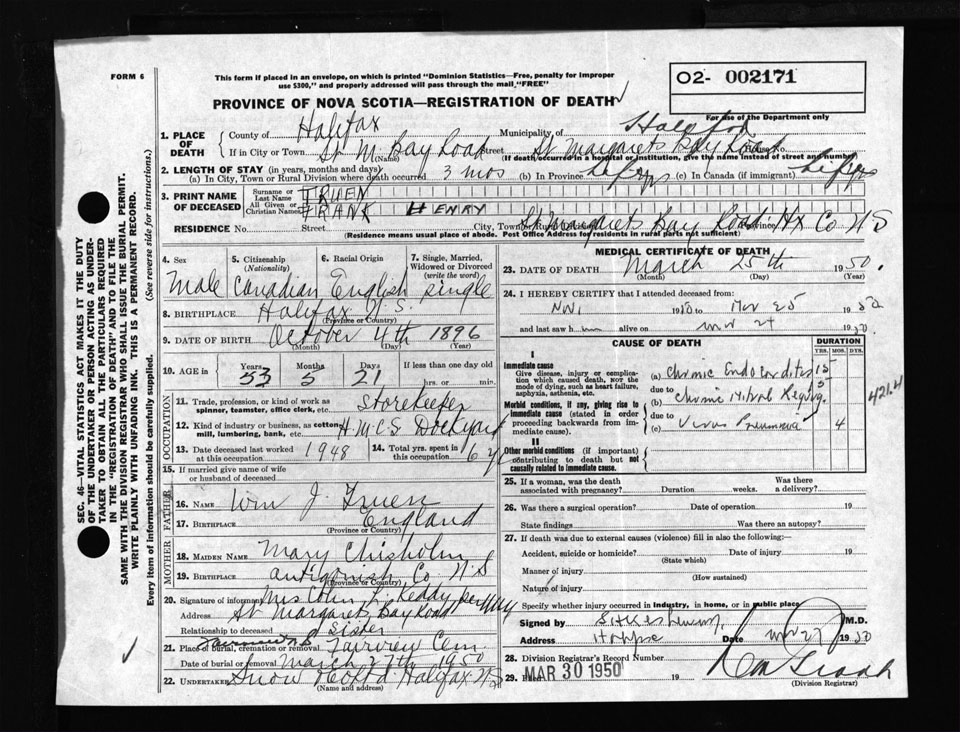 FORM 6
This form if placed in an envelope, on which is printed "Dominion Statistics—Free, penalty for improper
use $300," and properly addressed will pass through the mail "FREE"
02- 002171
PROVINCE OF NOVA SCOTIA—REGISTRATION OF DEATH
For use of the Department only
1. PLACE OF DEATH
County of Halifax Municipality of Halifax
If in City or Town St M. Bay Road Street St Margarets Bay Road House No.
(Name) (If death occurred in a hospital or institution, give the name instead of street and number)
2. LENGTH OF STAY (in years, months and days)
(a) In City, Town or Rural Division where death occurred 3 mos (b) In Province (c) In Canada (if immigrant)
3. PRINT NAME OF DECEASED
Surname or Last Name TRUEN
All Given or Christian Names FRANK HENRY
RESIDENCE No. Street City, Town or Rural Division St Margarets Bay Road Hx Co N S Province
(Residence means usual place of abode. Post Office Address for residents in rural parts not sufficient)
4. Sex
5. Citizenship (Nationality)
6. Racial Origin
7. Single, Married, Widowed or Divorced (write the word)
Male Canadian English single
8. BIRTHPLACE Halifax N.S.
(Province or Country)
9. DATE OF BIRTH October 4th 1896
(Month) (Day) (Year)
10. AGE in Years 53 Months 5 Days 21 If less than one day old hrs. or min.
OCCUPATION
11. Trade, profession, or kind of work as spinner, teamster, office clerk, etc. Storekeeper
12. Kind of industry or business, as cotton mill, lumbering, bank, etc. H.M.C.S Dockyard
13. Date deceased last worked at this occupation 1948
14. Total yrs. spent in this occupation 6 y
15. If married give name of wife or husband of deceased
FATHER
16. NAME Wm J. Truen
17. BIRTHPLACE England
(Province or Country)
MOTHER
18. MAIDEN NAME Mary Chisholm
19. BIRTHPLACE Antigonish Co N S
(Province or Country)
20. Signature of informant Mrs Colin L. Keddy per
Address St Margarets Bay Road
Relationship to deceased Sister
21. Place of burial, cremation or removal Fairview Cem.
Date of burial or removal March 27th 1950
22. UNDERTAKER Snow & Co Ltd. Halifax NS
(Name and address)
MEDICAL CERTIFICATE OF DEATH
23. DATE OF DEATH March 25th 1950.
(Month) (Day) (Year)
24. I HEREBY CERTIFY that I attended deceased from:
Nov. 1950 to Mar 25 1950
and last saw him alive on Mar 24 1950.
CAUSE OF DEATH
DURATION
YRS. MOS. DYS.
I
Immediate cause
Give disease, injury or complication which caused death, NOT the mode of dying, such as heart failure, asphyxia, asthenia, etc.
(a) Chronic Endocarditis 15
due to
Morbid conditions, if any, giving rise to immediate cause (stated in order proceeding backwards from immediate cause).
(b) Chronic Mitral Regurg. 5
due to
(c) Virus Pneumonia 4
421.4
II
Other morbid conditions (if important) contributing to death but not causally related to immediate cause.
25. If a woman, was the death associated with pregnancy? Duration weeks. Was there a delivery?
26. Was there a surgical operation? Date of operation 19
State findings Was there an autopsy?
27. If death was due to external causes (violence) fill in also the following:—
Accident, suicide or homicide? Date of injury 19
(State which)
Manner of injury
(How sustained)
Nature of injury
Specify whether injury occurred in industry, in home, or in public place
Signed by M.D.
Address Date Mar 27 1950
28. Division Registrar's Record Number
29. Filed MAR 30 1950 19
(Division Registrar)
SEC. 46—VITAL STATISTICS ACT MAKES IT THE DUTY
OF THE UNDERTAKER OR PERSON ACTING AS UNDER-
TAKER TO OBTAIN ALL THE PARTICULARS REQUIRED
IN THE "REGISTRATION OF DEATH" AND TO FILE THE
SAME WITH THE DIVISION REGISTRAR WHO SHALL ISSUE THE BURIAL PERMIT.
WRITE PLAINLY WITH UNFADING INK. THIS IS A PERMANENT RECORD.
Every item of information should be carefully supplied. (See reverse side for instructions.)